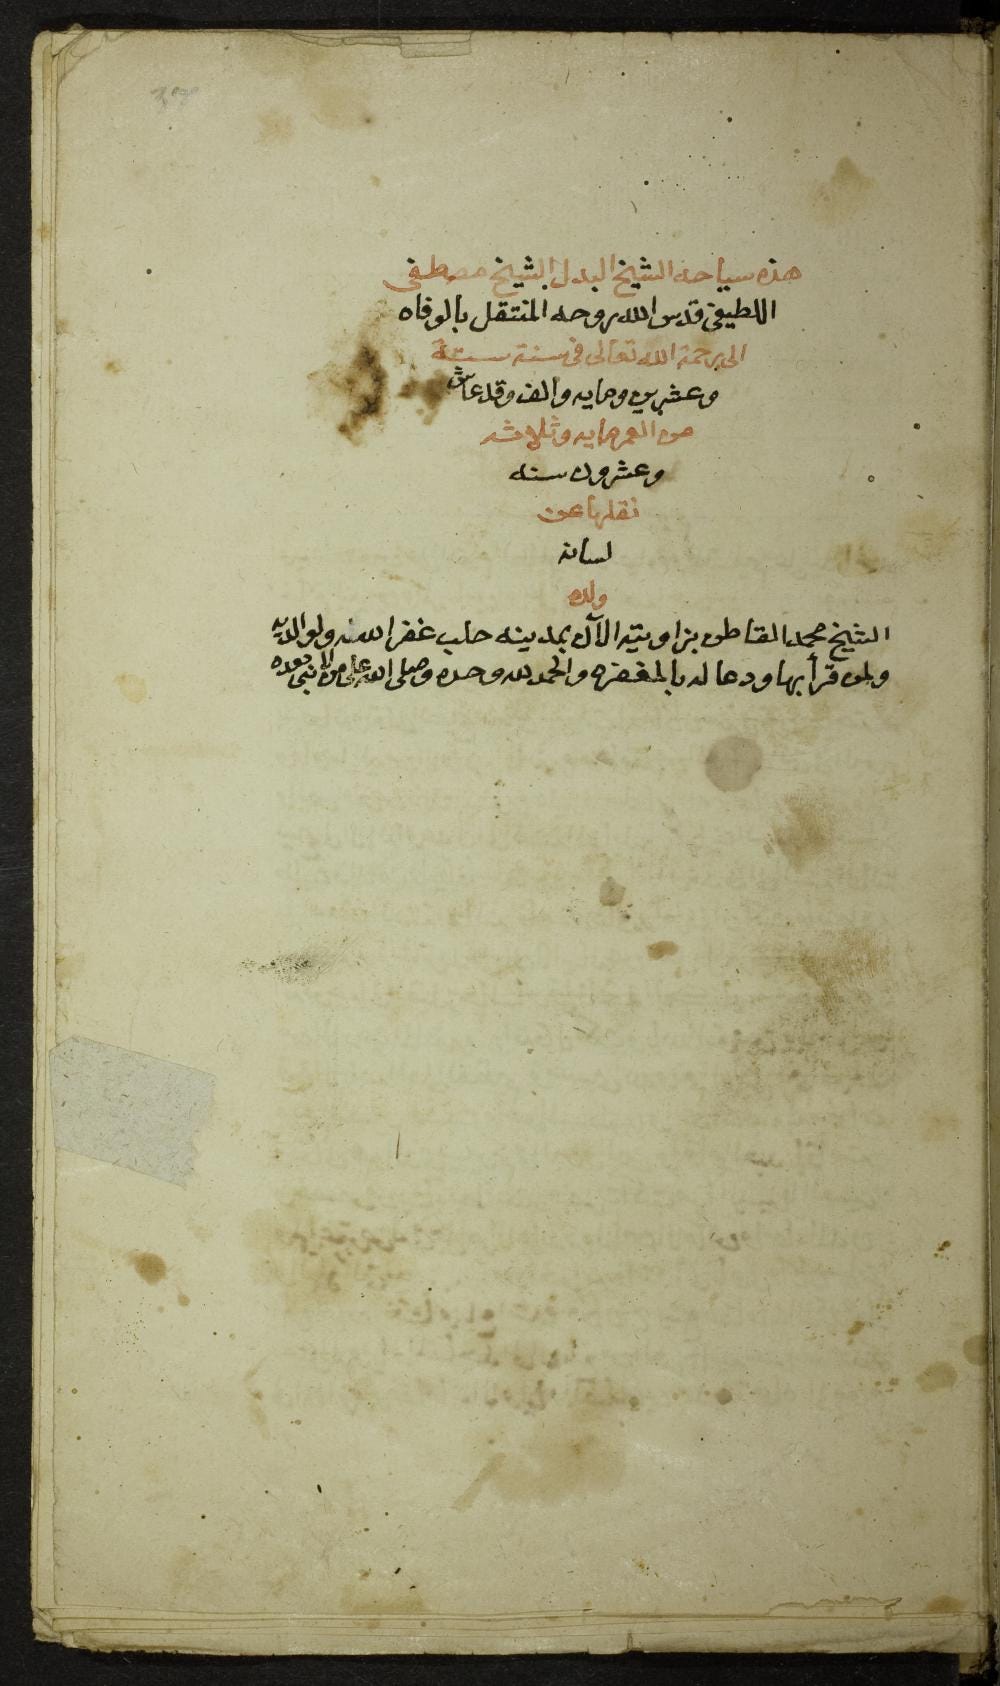 هذه سياحة الشيخ البدل الشيخ مصطفى
اللطيفي قدس الله روحه المنتقل بالوفاه
الى رحمة الله تعالى في سنة ستة
وعشرين ومايه والف وقد عاش
من العمر مايه وثلاثه
وعشرون سنه
نقلها عن
لسانه
ولده
الشيخ محمد القاطن بزاويته الآن بمدينه حلب غفر الله له ولوالديه
ولمن قرأ بها ودعا له بالمغفره والحمد لله وحده وصلى الله على من لا نبي بعده